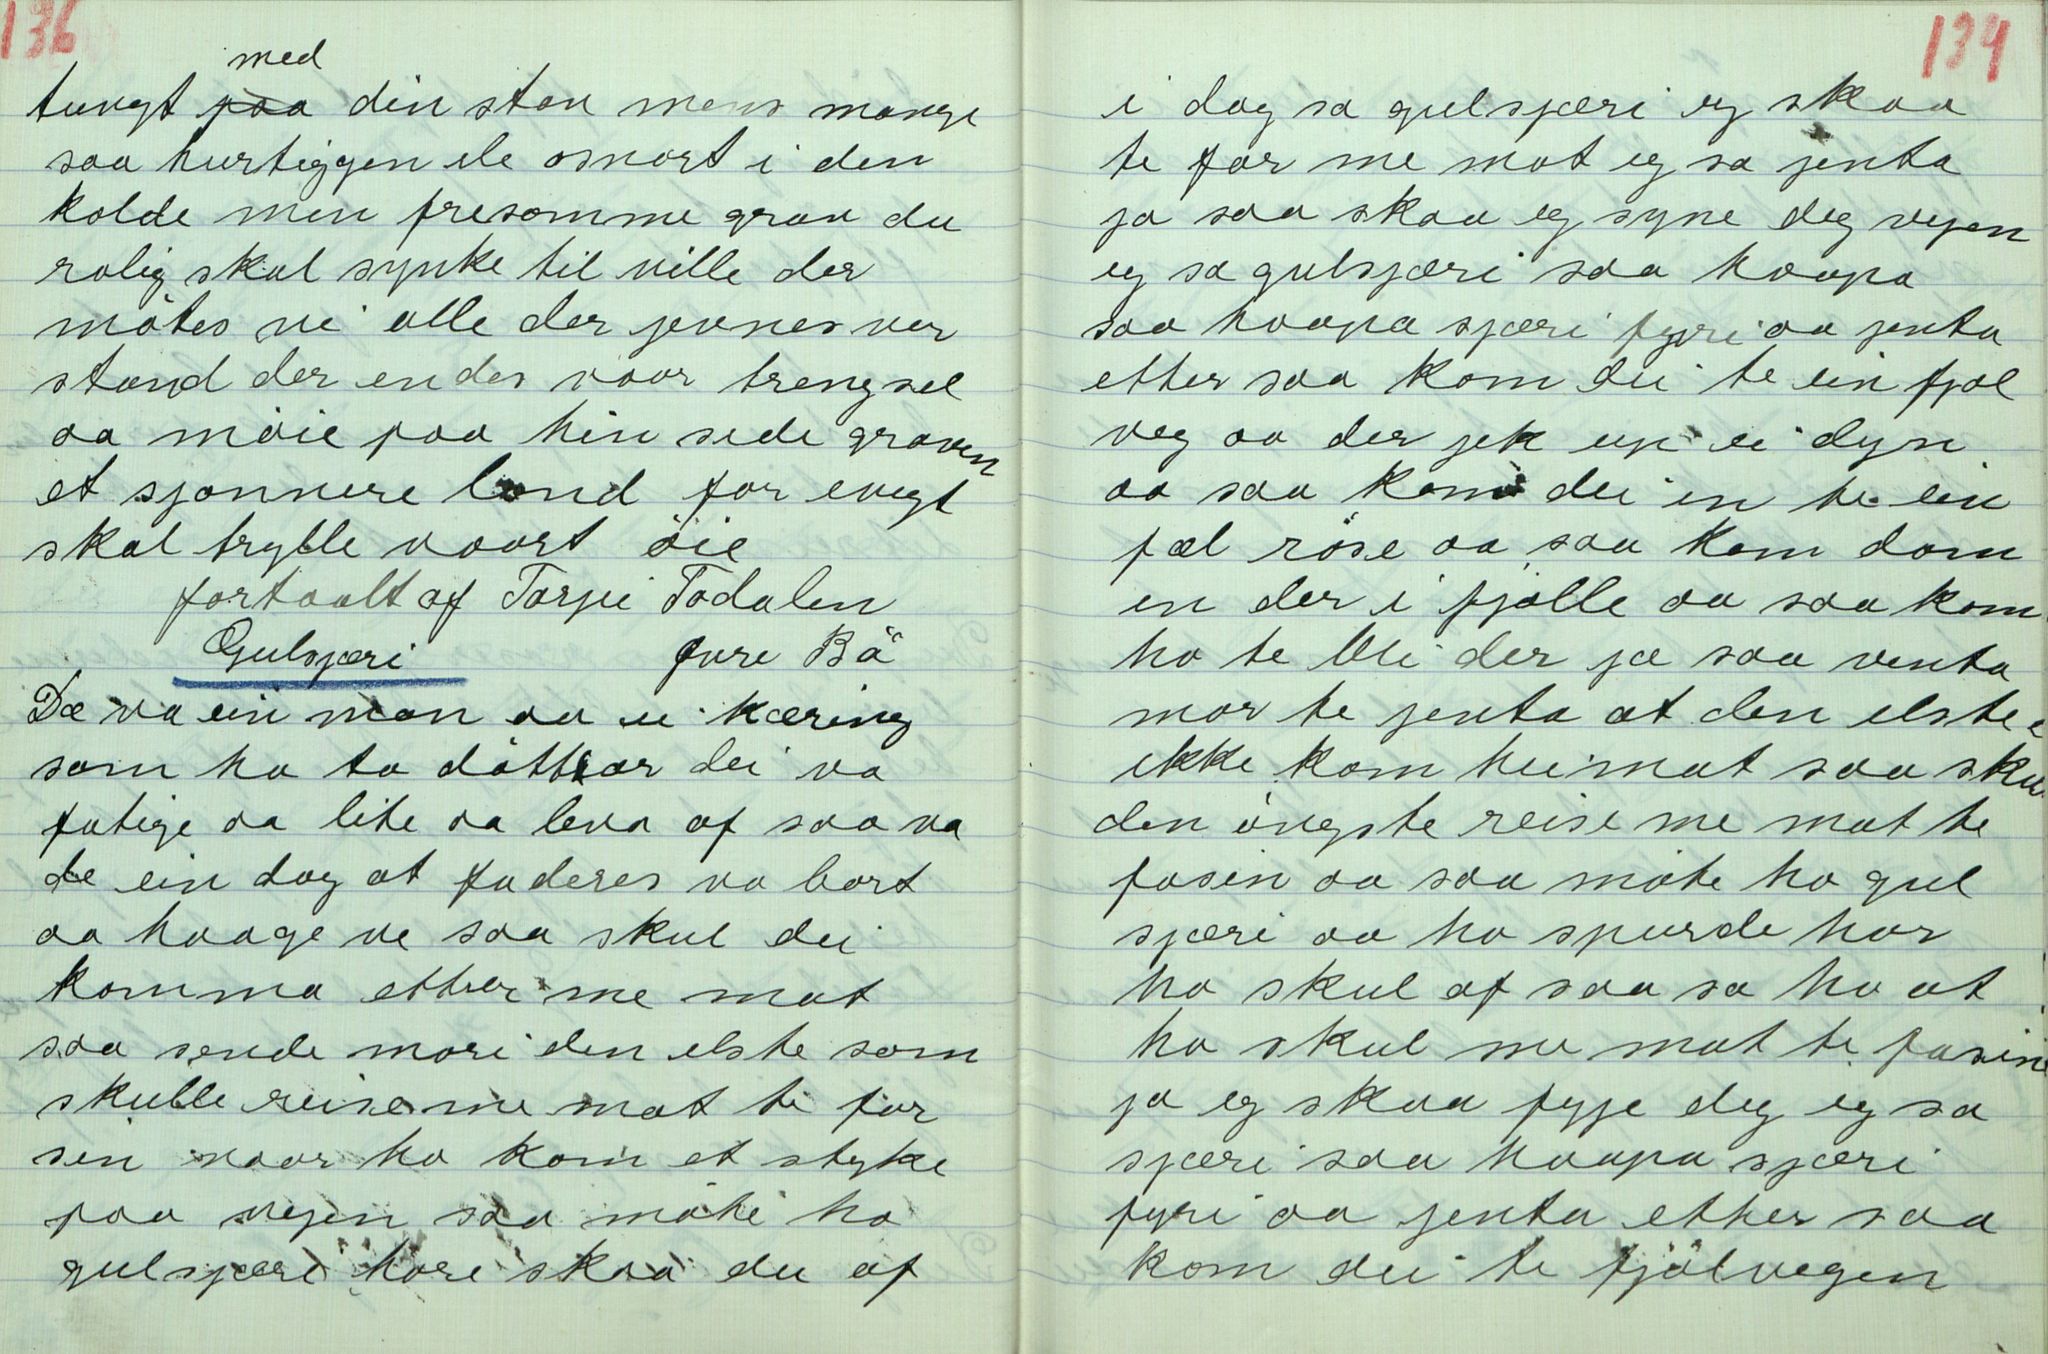 136
med
tungt paa din stav mens mange
saa hurtiggen ile osnart i den
kolde men fresomme grav du
rolig skal synke til ville der
mötes vi alle der jevnes ver
stand der endes vaar trengsel
aa möie paa hin side graven
et sjønnere land for evigt
skal trylle vaart öie
fortaalt af Tarjei Todalen
Gulsjæri övre Bö
Dæ va ein man aa ei kæring
som ha to döttrar dei va
fatige aa lite aa leva af saa va
de ein dag at faderes va bort
aa haage ve saa skul dei
komma etter me mat
saa sende mori den elste som
skulle reise me mat te far
sin naar ho kom et styke
paa vejen saa möte ho
gulsjæri hore skaa du af
134
i dag sa gulsjæri eg skaa
te far me mat eg sa jenta
ja saa skaa eg syne deg vejen
eg sa gulsjæri saa haapa
saa haapa sjæri fyri aa jenta
etter saa kom dei te ein fjøl
veg aa der jek up ei dyn
aa saa kom dei in te ein
fæl röse aa saa kom dom
in der i fjølle aa saa kom
ho te bli der ja saa venta
mor te jenta at den elste
ikke kom heimat saa sku
den öngste reise me mat te
fasin aa saa möte ho gul
sjæri aa ho spurde hor
ho skul af saa sa ho at
ho skul me mat te fasine
ja eg skaa fyje deg eg sa
sjæri saa haapa sjæri
fyri aa jenta etter saa
kom dei te fjölvegen